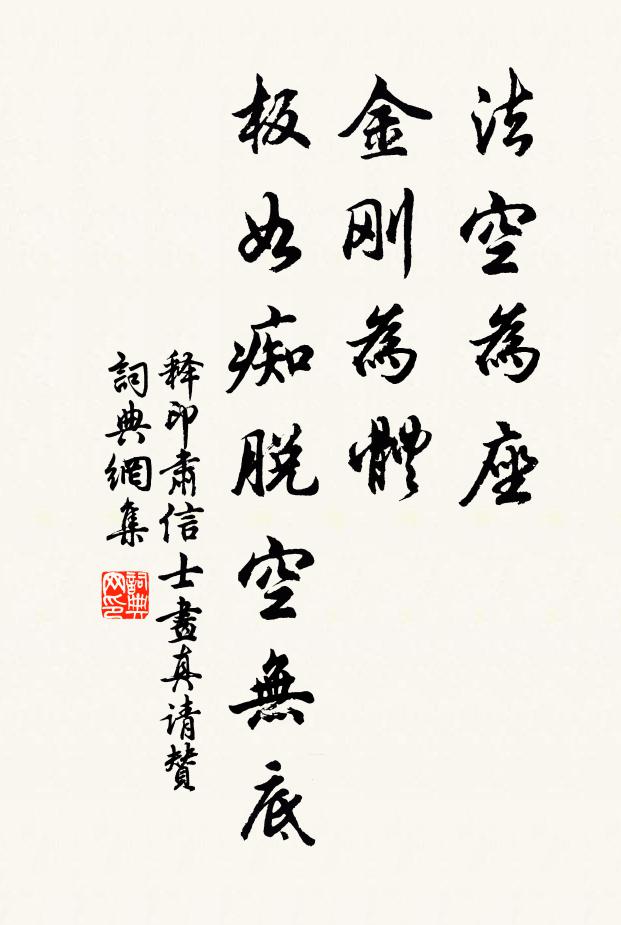 法空為座
金剛為體
板如痴脫空無底
释印肅信士畫真请贊
詞典網集
詞典网印